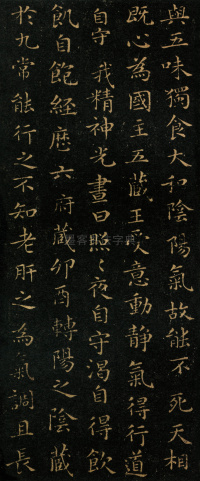 與五味獨食大和陰陽氣故能不死天相
既心為國主五藏王受意動静氣得行道
自守我精神光晝日照照夜自守渴自得飲
飢自飽經歷六府藏卯酉轉陽之陰藏
於九常能行之不知老肝之為氣調且長